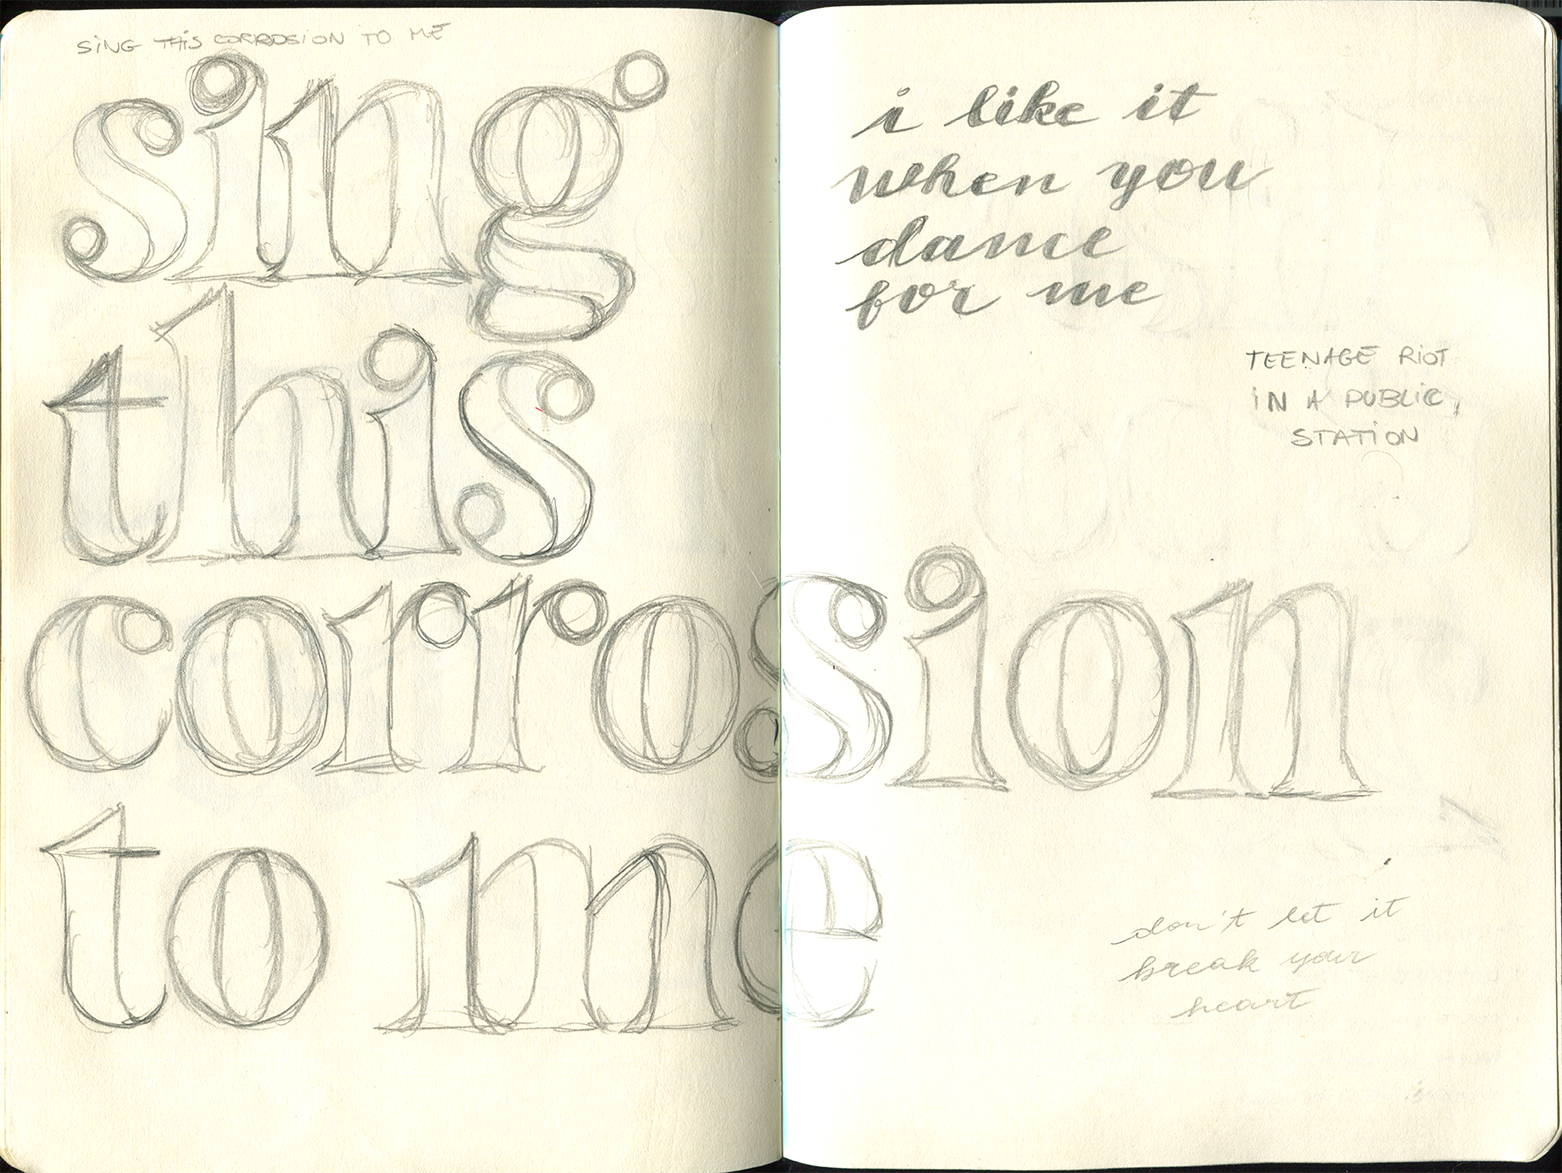 SING THIS CORROSION TO ME
sing
this
corrosion
to me
i like it
when you
dance
for me
TEENAGE RIOT
IN A PUBLIC
STATION
don't let it
break your
heart